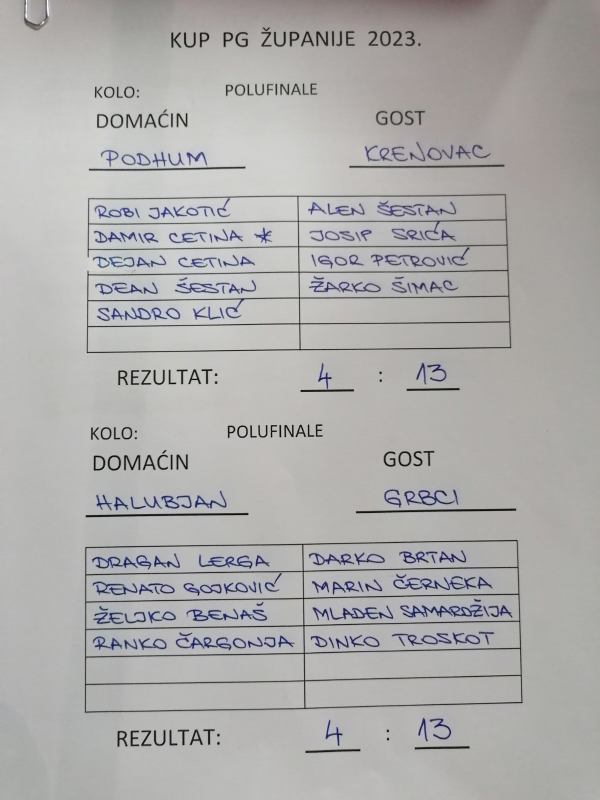 KUP PG ŽUPANIJE 2023.
KOLO: POLUFINALE
DOMAĆIN GOST
PODHUM KRENOVAC
ROBI JAKOTIĆ ALEN ŠESTAN
DAMIR CETINA * JOSIP SRIĆA
DEJAN CETINA IGOR PETROVIĆ
DEAN ŠESTAN ŽARKO ŠIMAC
SANDRO KLIĆ
REZULTAT: 4 : 13
KOLO: POLUFINALE
DOMAĆIN GOST
HALUBJAN GRBCI
DRAGAN LERGA DARKO BRTAN
RENATO GOJKOVIĆ MARIN ČERNEKA
ŽELJKO BENAŠ MLADEN SAMARDŽIJA
RANKO ČARGONJA DINKO TROSKOT
REZULTAT: 4 : 13